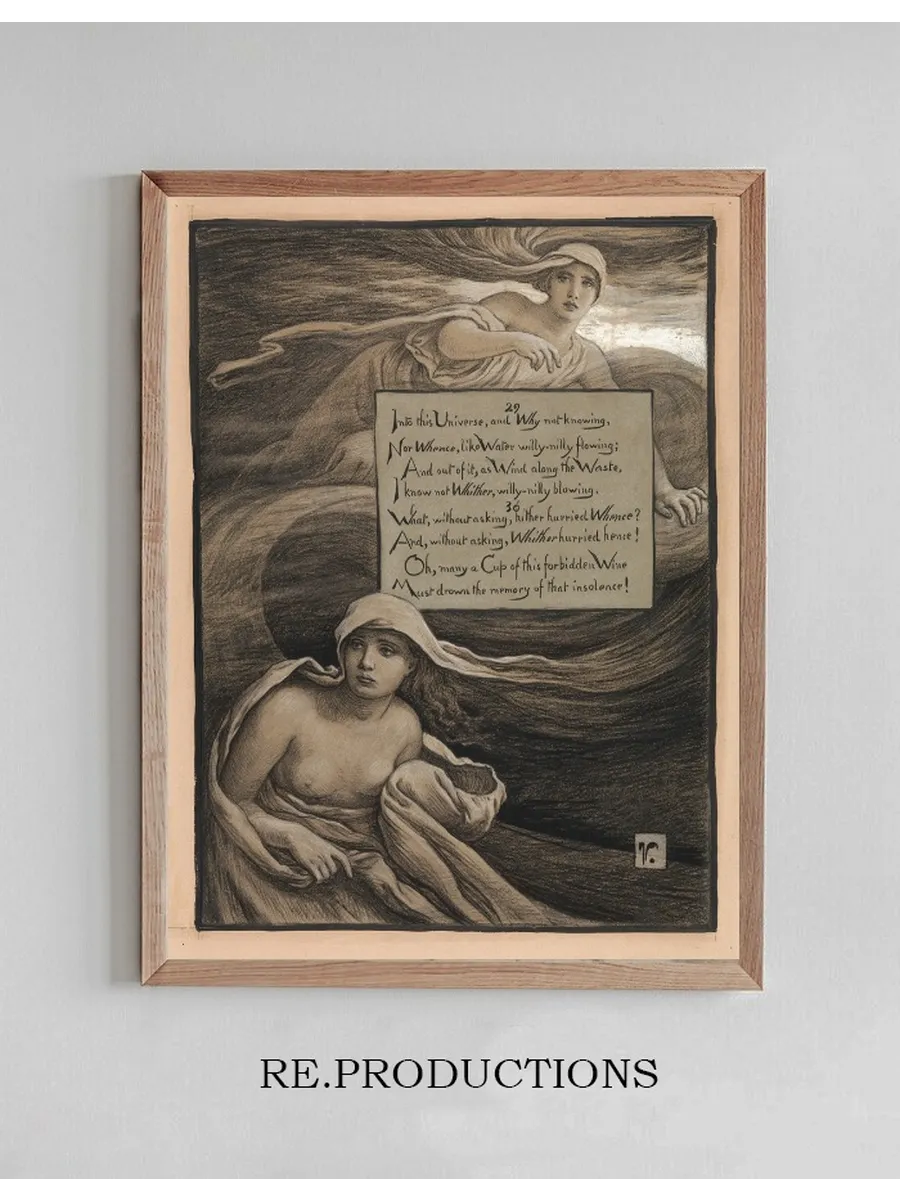 29
Into this Universe, and Why not knowing,
Nor Whence, like Water willy-nilly flowing;
And out of it, as Wind along the Waste,
I know not Whither, willy-nilly blowing.
30
What, without asking, hither hurried Whence?
And, without asking, Whither hurried hence!
Oh, many a Cup of this forbidden Wine
Must drown the memory of that insolence!
V.
RE.PRODUCTIONS